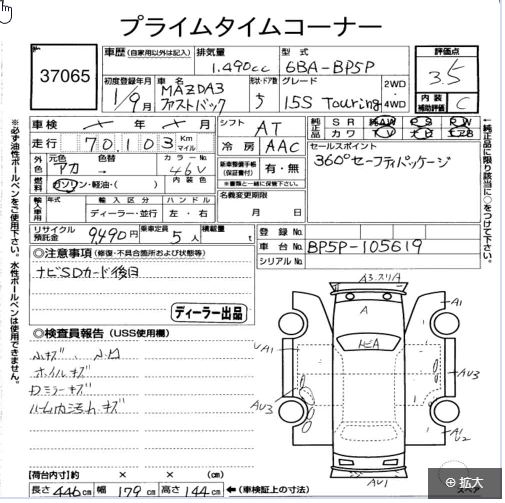 プライムタイムコーナー
37065
車歴 (自家用以外は記入) 排気量 型式 評価点
1.490cc 6BA-BP5P 3.5
初度登録年月 車名 形状・ドア数 グレード 2WD・4WD 内装補助評価 C
1/9月 MAZDA3 ファストバック 5 15S Touring
※必ず油性ボールペンをご使用下さい。水性ボールペンは使用できません。
車検 年 月 シフト AT 純正品 S R AAW P S P W
カワ T V ナビ エアB
走行 70,103 Km マイル 冷房 AAC セールスポイント
360°セーフティパッケージ
外色 元色 色替 カラーNo. 新車整備手帳(保証書付) 有・無
アカ 46V ※書類と一緒に保管下さい。
燃料 ガソリン・軽油・( ) 内装色 名義変更期限
輸入車用 年式 輸入区分 ハンドル 月 日
ディーラー・並行 左・右
リサイクル預託金 9,490円 乗車定員 5人 積載量 t 登録No.
車台No. BP5P-105619
シリアルNo.
←純正品に限り該当に○をつけて下さい。
◎注意事項 (修復・不具合箇所および状態等)
ナビSDカード後日
ディーラー出品
◎検査員報告 (USS使用欄)
小キズ 小凹
ホイルキズ
Dミラーキズ
ルーム内汚れ・キズ
A3.スリA
A
トビA
A1
UA1
AU3
AU3
A1
U2
AU1
スペア
【荷台内寸】 × × (cm)
長さ 446cm 幅 179cm 高さ 144cm ←(車検証上の寸法)
拡大